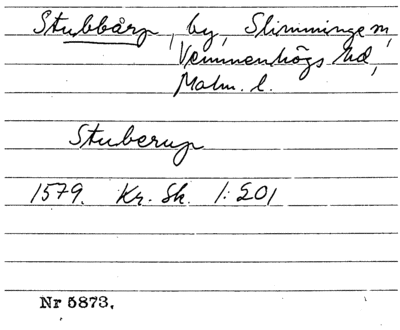 Stubbårp, by, Slimminge sn,
Vemmenhögs hd,
Malm. l.
Stuberup
1579. Kr. Sk. 1:201
Nr 5873.